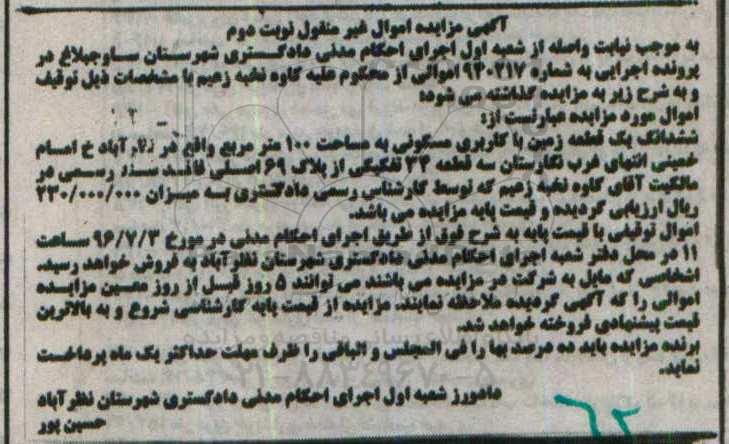 آگهی مزایده اموال غیر منقول نوبت دوم
به موجب نیابت واصله از شعبه اول اجرای احکام مدنی دادگستری شهرستان ساوجبلاغ در
پرونده اجرایی به شماره ۹۴۰۲۱۷ اموالی از محکوم علیه کاوه نخبه زعیم با مشخصات ذیل توقیف
و به شرح زیر به مزایده گذاشته می شود:
اموال مورد مزایده عبارتست از:
ششدانگ یک قطعه زمین با کاربری مسکونی به مساحت ۱۰۰ متر مربع واقع در نظرآباد خ امام
خمینی انتهای غرب نگارستان سه قطعه ۳۴ تفکیکی از پلاک ۶۹ اصلی فاقد سند رسمی در
مالکیت آقای کاوه نخبه زعیم که توسط کارشناس رسمی دادگستری به میزان ۲۳۰/۰۰۰/۰۰۰
ریال ارزیابی گردیده و قیمت پایه مزایده می باشد.
اموال توقیفی با قیمت پایه به شرح فوق از طریق اجرای احکام مدنی در مورخ ۹۶/۷/۳ ساعت
۱۱ در محل دفتر شعبه اجرای احکام مدنی دادگستری شهرستان نظرآباد به فروش خواهد رسید.
اشخاصی که مایل به شرکت در مزایده می باشند می توانند ۵ روز قبل از روز معین مزایده
اموالی را که آگهی گردیده ملاحظه نمایند. مزایده از قیمت پایه کارشناسی شروع و به بالاترین
قیمت پیشنهادی فروخته خواهد شد.
برنده مزایده باید ده درصد بها را فی المجلس و الباقی را ظرف مهلت حداکثر یک ماه پرداخت
نماید.
۰۲۱-۸۸۳۴۹۶۷۰-۵
دادورز شعبه اول اجرای احکام مدنی دادگستری شهرستان نظرآباد
حسین پور